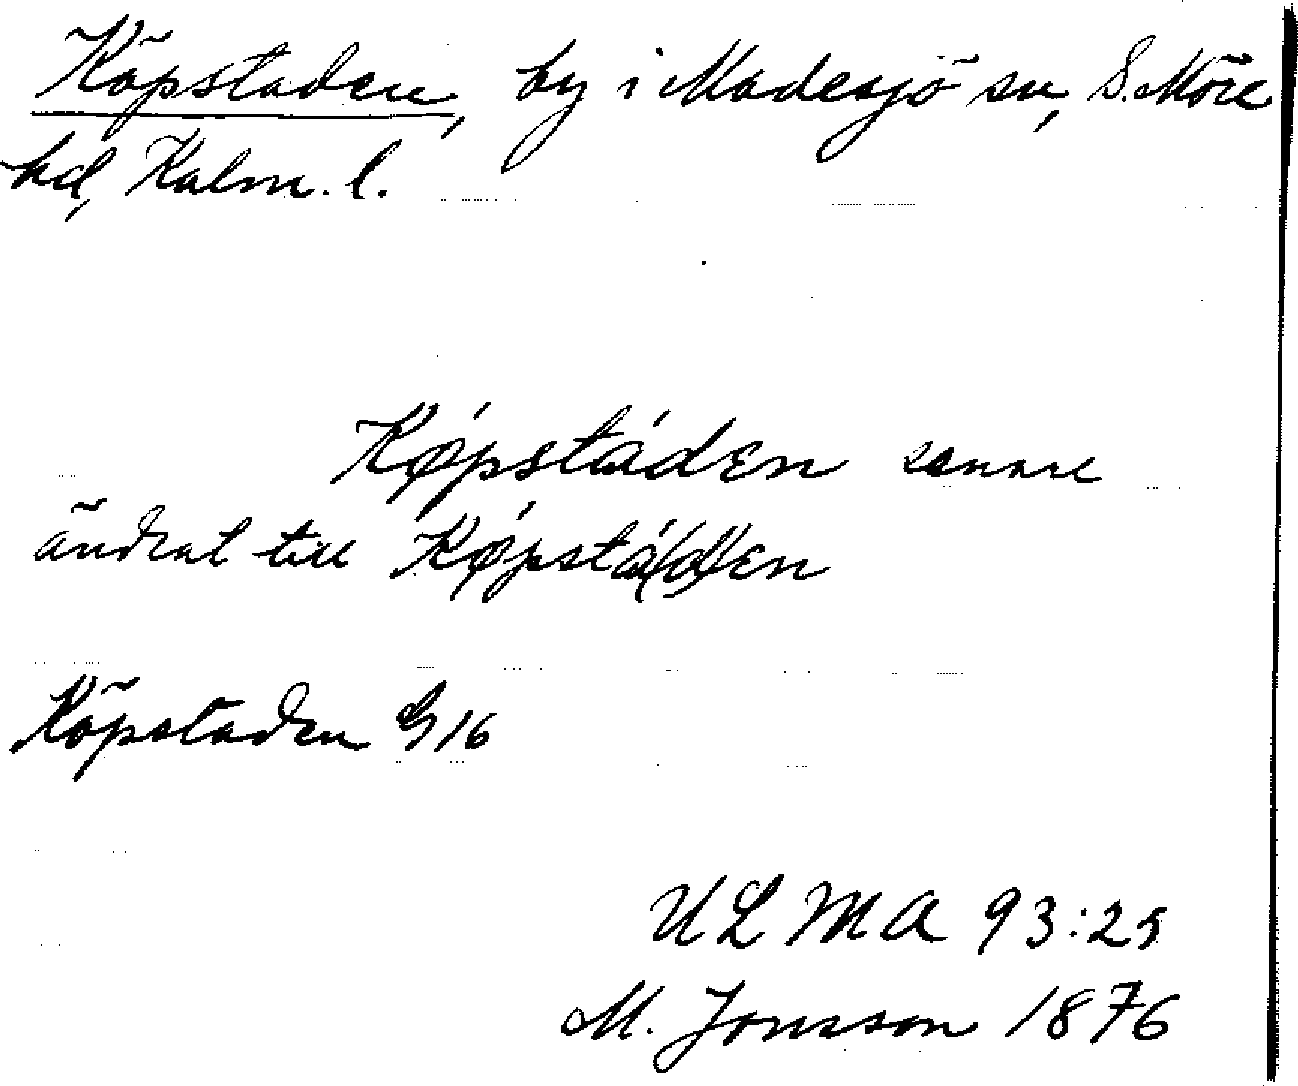 Köpstaden, by i Madesjö sn, S. Möre
hd, Kalm. l.
Kǿpstáden senare
ändrat till Kǿpstá(d)en
Köpstaden G16
ULMA 93:25
M. Jonsson 1876